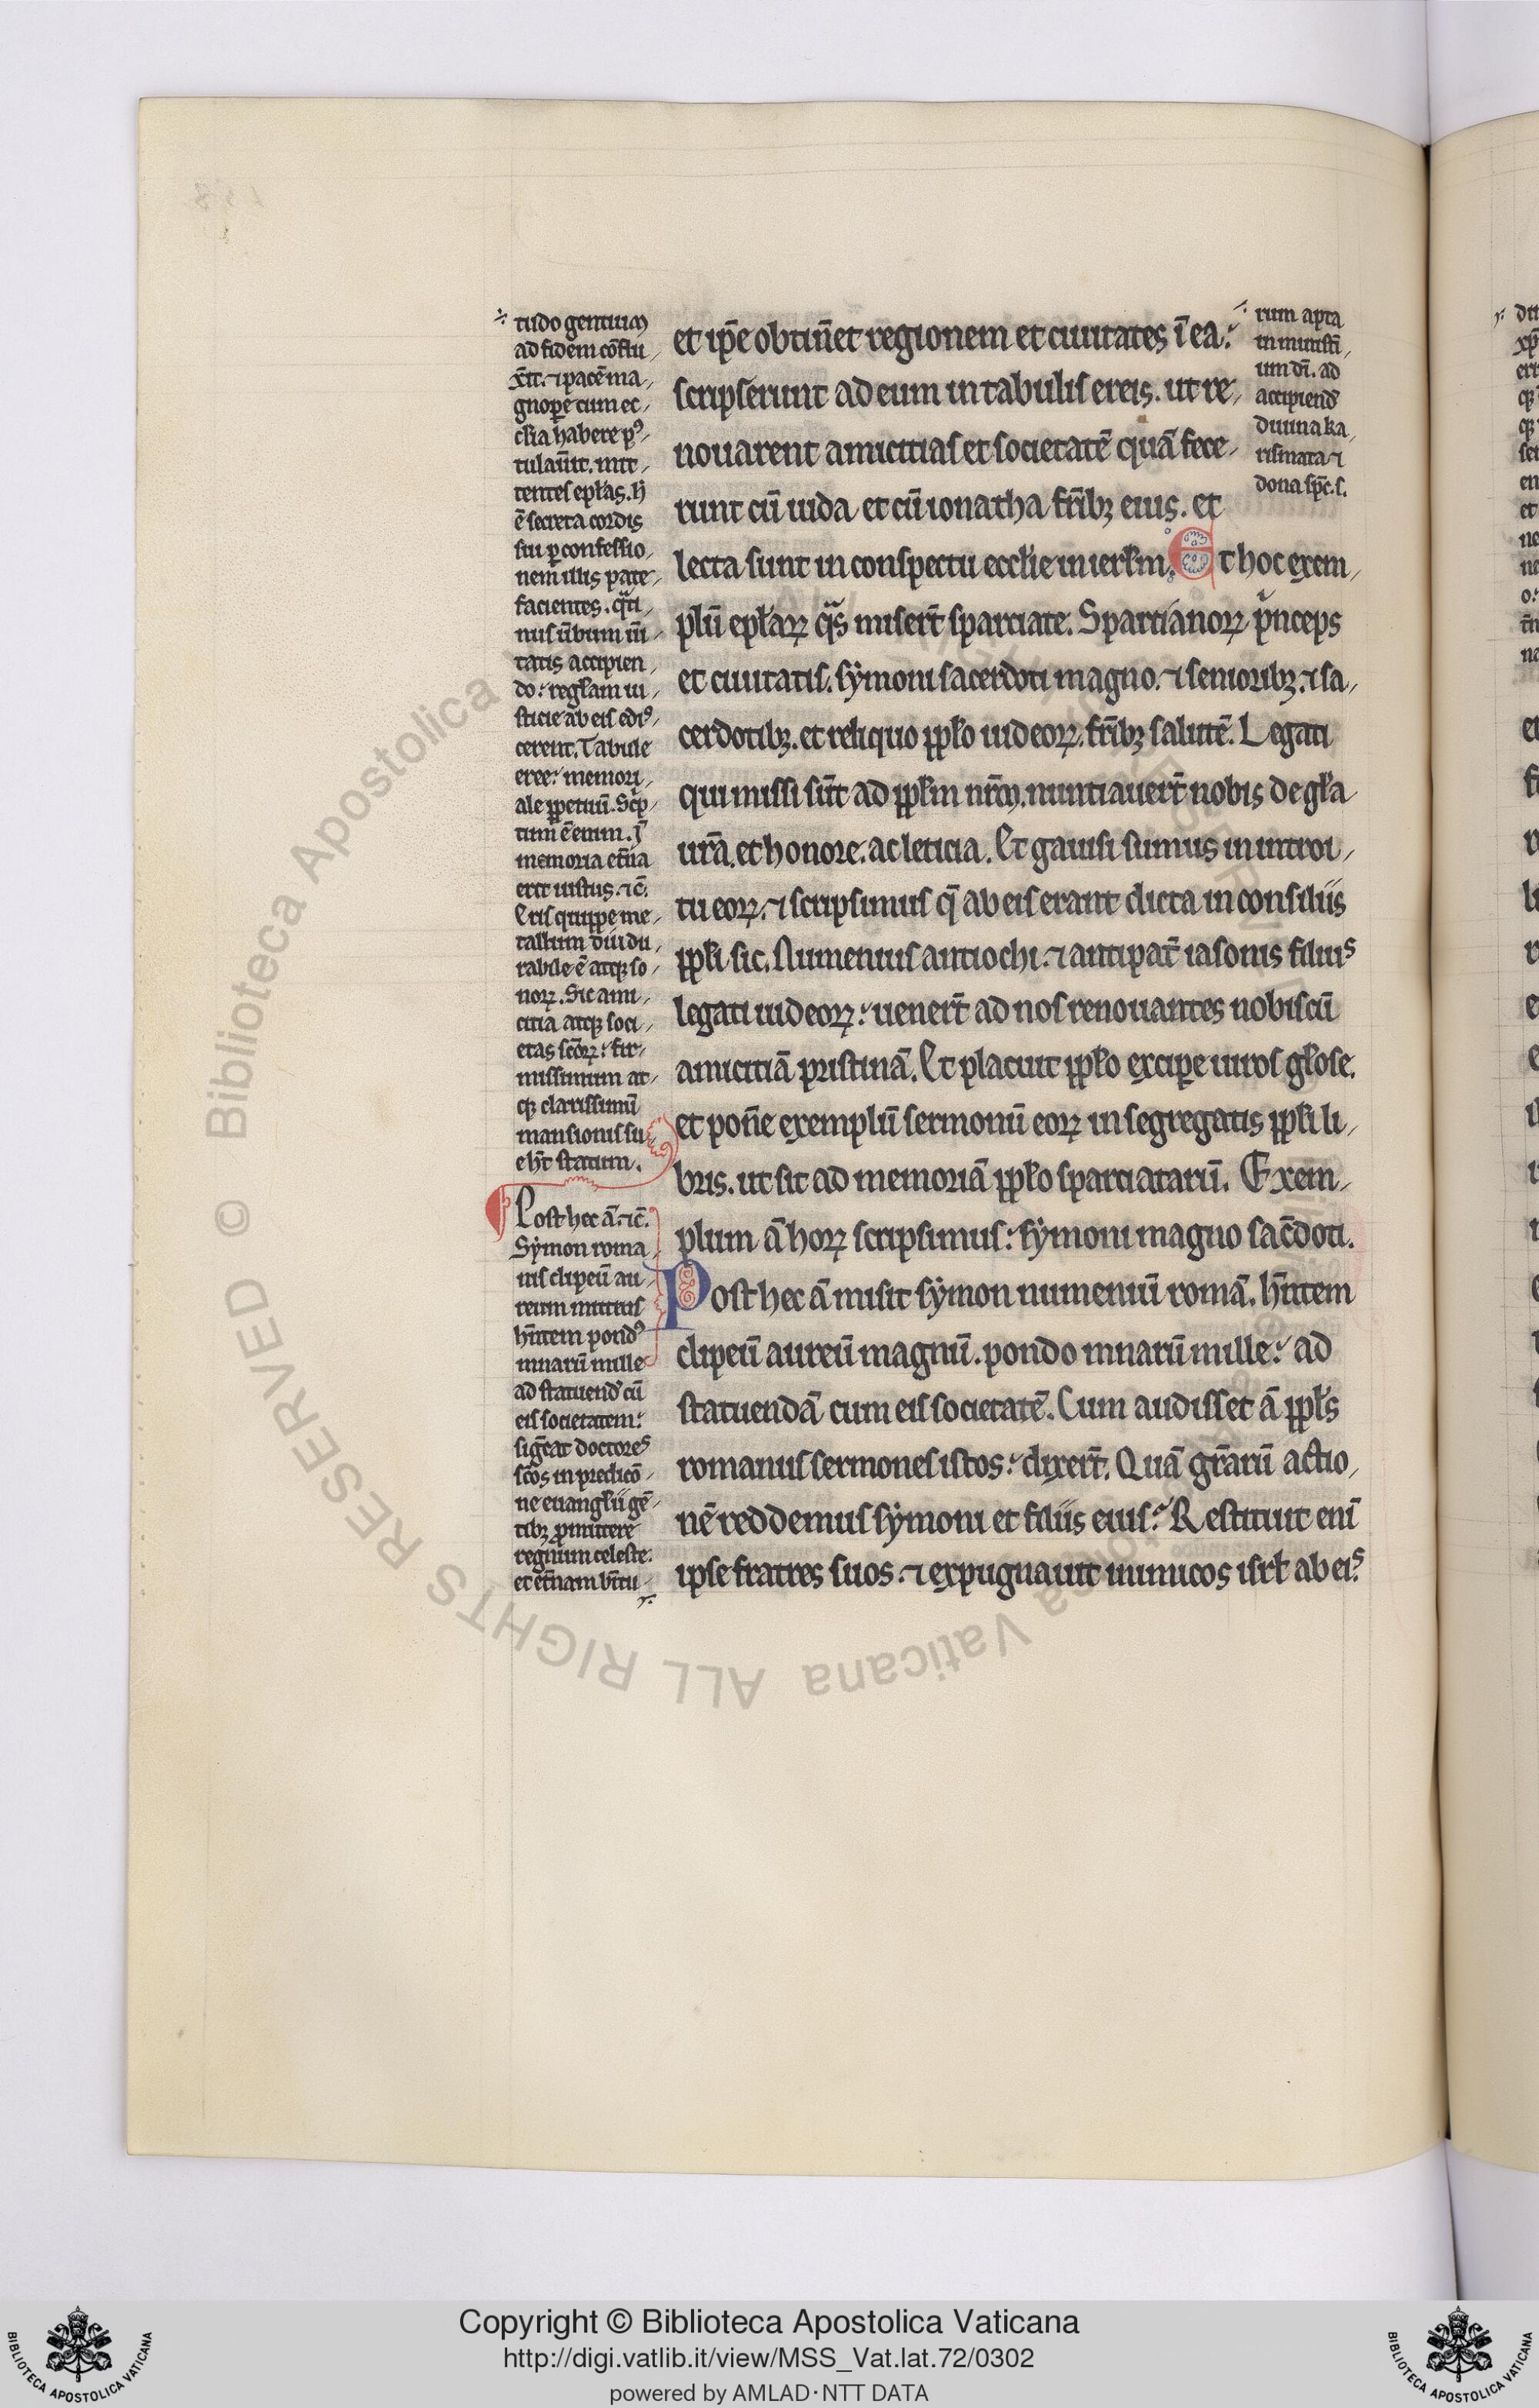 tudo gentium
ad fidem cōflu,
xīt. ⁊ pacē ma,
gnoꝑe cum ec,
clīa habere pꝰ,
tulauīt. mit,
tentes epl̄as. ħ
ē secreta cordis
sui ꝑ confessio,
nem illis pate,
facientes. q̄ti,
nus ūbum ūi,
tatis accipien,
do: regl̄am iu,
sticie ab eis edi,
cerent. Tabule
eree: memori,
ale ꝑpetuū. Scͥp,
tum ē enim. J̄
memoria et̄na
erit iustus. ⁊c̄.
Eris quippe me,
tallum diu du,
rabile ē atqꝫ so,
noꝝ. Sic ami,
citia atqꝫ soci,
etas sc̄oꝝ: fir,
missimum at,
qꝫ clarissimū
mansionis su,
e hn̄t statum.
Post hec ā. ⁊c̄.
Sẏmon roma,
nis clipeū au,
reum mittens
hn̄tem pondꝰ
mnarū mille
ad statuendā cū
eis societatem:
sigc̄at doctores
sc̄os in predicō,
ne euangl̄ii gē,
tibꝫ ꝓmittere
regnum celeste.
et et̄nam bt̄itu,
et ip̄e obtin̄et regionem et ciuitates ī ea:
scripserunt ad eum in tabulis ereis. ut re,
nouarent amicitias et societatē quā fece,
runt cū iuda et cū ionatha fr̄ibꝫ eius. et
lecta sunt in conspectu eccl̄ie in ierl̄m. Et hoc exem,
plū epl̄aꝝ q̄s miser̄t sparciate. Spartianoꝝ pͥnceps
et ciuitatis. sẏmoni sacerdoti magno. ⁊ senioribꝫ. ⁊ sa,
cerdotibꝫ. et reliquo pp̄lo iudeoꝝ. fr̄ibꝫ salutē. Legati
qui missi sūt ad pp̄lm nr̄m. nuntiauer̄t nobis de gl̄a
ur̄a. et honore. ac leticia. Et gauisi sumus in introi,
tu eoꝝ. ⁊ scripsimus q̄ ab eis erant dicta in consiliis
pp̄li sic. Numenius antiochi. ⁊ antipat̄ iasonis filius
legati iudeoꝝ: uener̄t ad nos renouantes nobiscū
amicitiā pristinā. Et placuit pp̄lo exciꝑe uiros gl̄ose.
et pon̄e exemplū sermonū eoꝝ in segregatis pp̄li li,
bris. ut sit ad memoriā pp̄lo sparciatarū. Exem,
plum ā hoꝝ scripsimus: sẏmoni magno sac̄doti.
Post hec ā misit sẏmon numeniū romā. hn̄tem
clipeū aureū magnū. pondo mnarū mille: ad
statuendā cum eis societatē. Cum audisset ā pp̄ls
romanus sermones istos: dixer̄t. Quā gr̄arū actio,
nē reddemus sẏmoni et filiis eius: Restituit enī
ipse fratres suos. ⁊ expugnauit inimicos isrl̄ ab eis.
rum apta
in minist̄i,
um dī. ad
accipiendā
diuina ka,
rismata ⁊
dona sp̄c. s.
Copyright © Biblioteca Apostolica Vaticana
http://digi.vatlib.it/view/MSS_Vat.lat.72/0302
powered by AMLAD·NTT DATA
BIBLIOTECA APOSTOLICA VATICANA
BIBLIOTECA APOSTOLICA VATICANA
© Biblioteca Apostolica Vaticana ALL RIGHTS RESERVED